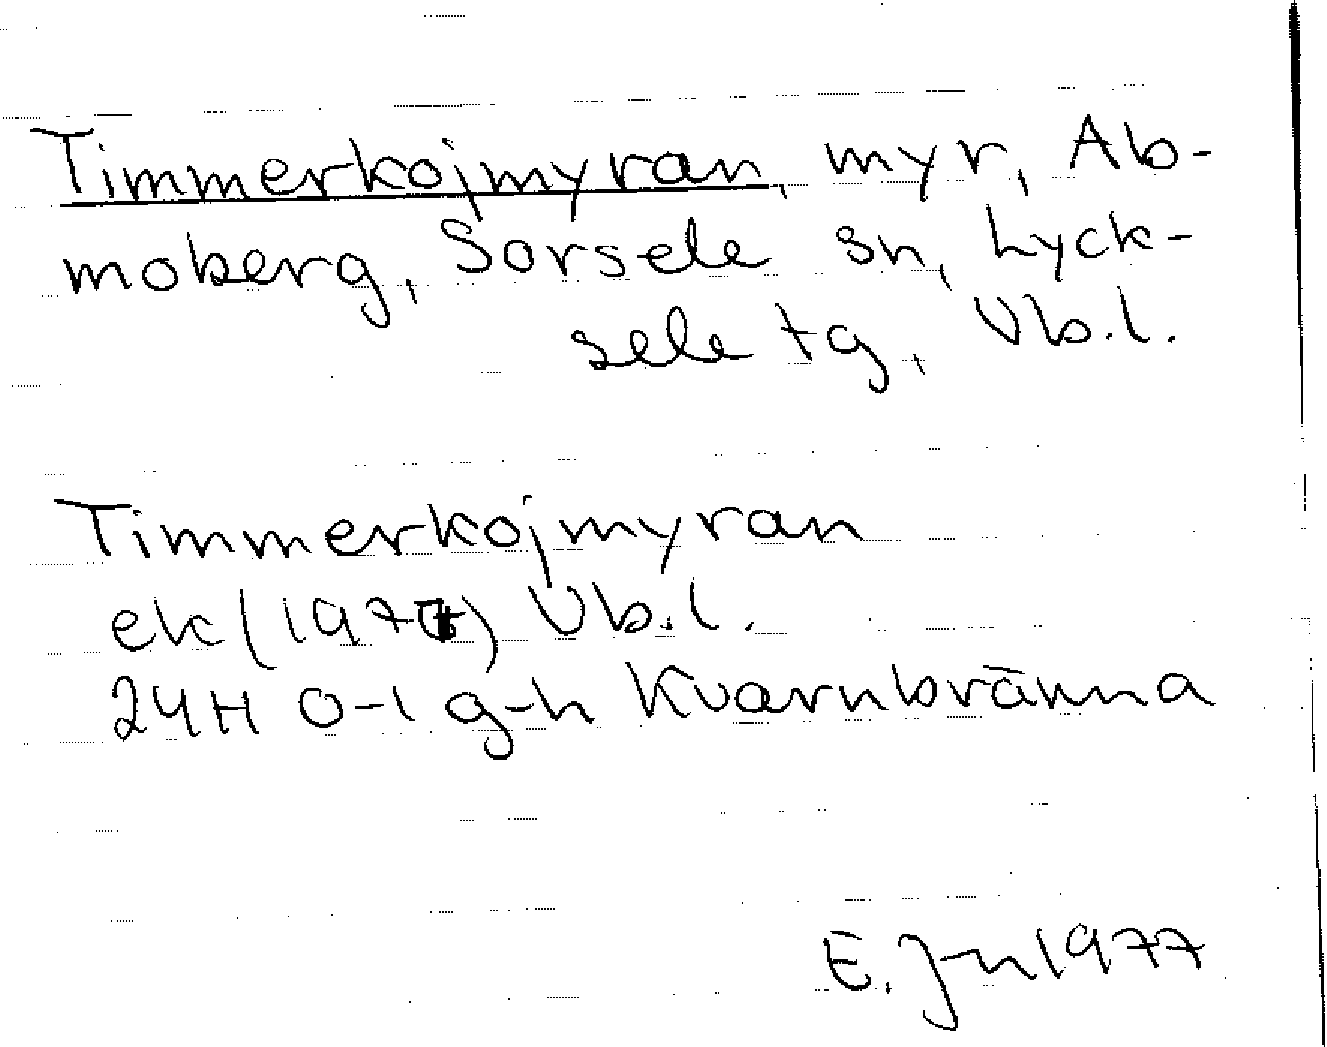 Timmerkojmyran, myr, Ab-
moberg, Sorsele sn, Lyck-
sele tg, Vb.l.
Timmerkojmyran
ek (1971) Vb.l.
24H 0-1 g-h Kvarnbränna
E. Jn 1977